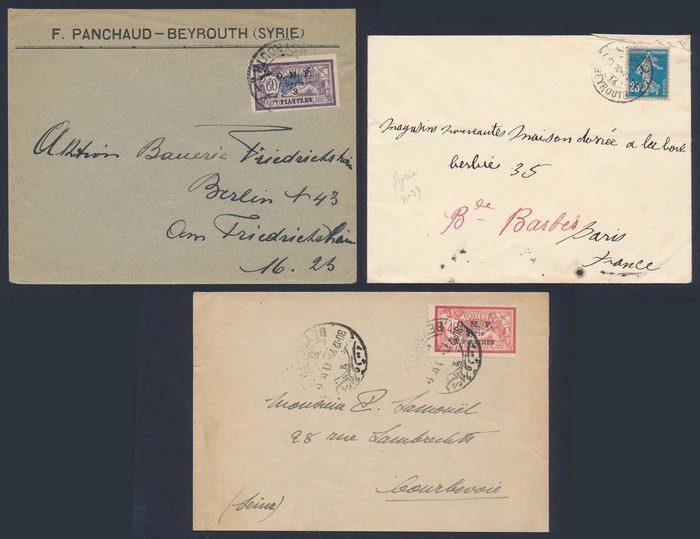 F. PANCHAUD-BEYROUTH (SYRIE)
60
O. M. F.
Syrie
3
Aktion Bauerie Friedrichshain
Berlin N 43
Am Friedrichshain
16. 23
BEYROUTH
25
Magasins nouveautés maison dorée a la
35
Syrie
Bde Barbès
Paris
France
BEYROUTH
POSTES
40
O. M. F.
Monsieur P. Lamouël
28 rue Lambrechts
Courbevoie
(Seine)